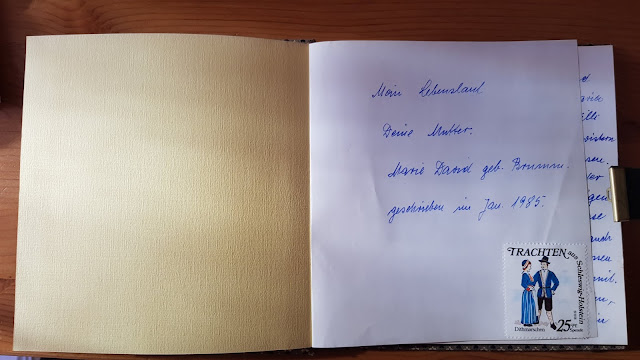 Mein Lebenslauf
Deine Mutter.
Marie David geb. Brumm.
geschrieben im Jan. 1985.
TRACHTEN aus Schleswig-Holstein
Dithmarschen
25
auch